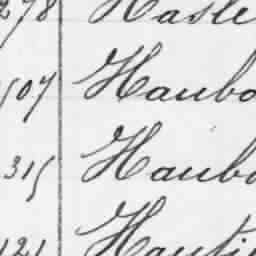 278 Hasle
507 Haubo
315 Haubo
121 Hauti